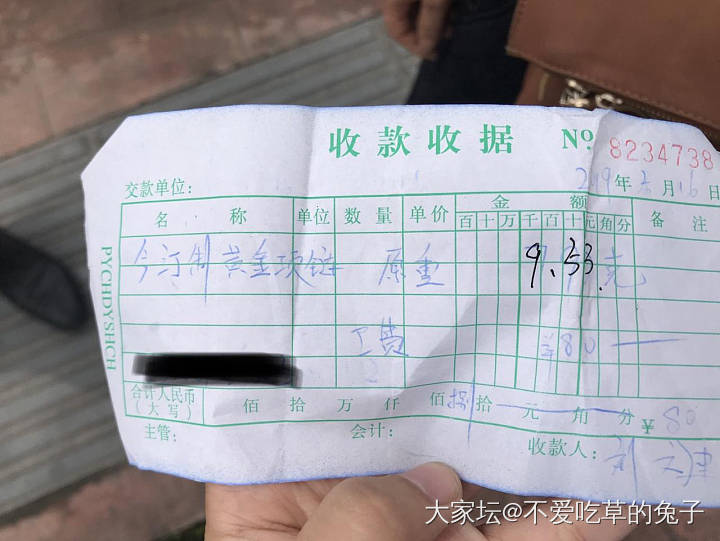 收款收据 No 8234738
交款单位: 2019年 月16日
名称 单位 数量 单价 金额 备注
百十万千百十元角分
今订制黄金项链 原重 9.53 克
工费 ¥80
合计人民币
(大写) 佰 拾 万 仟 佰 捌拾 元 角 分 ¥ 80
主管: 会计: 收款人:
PYCHDYSHCH
大家坛@不爱吃草的兔子